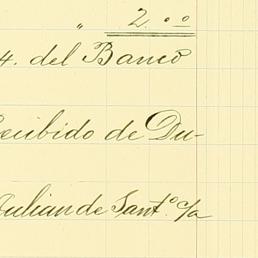 " 2.00
4. del Banco
Recibido de Du-
Julian de Sant.º c/a